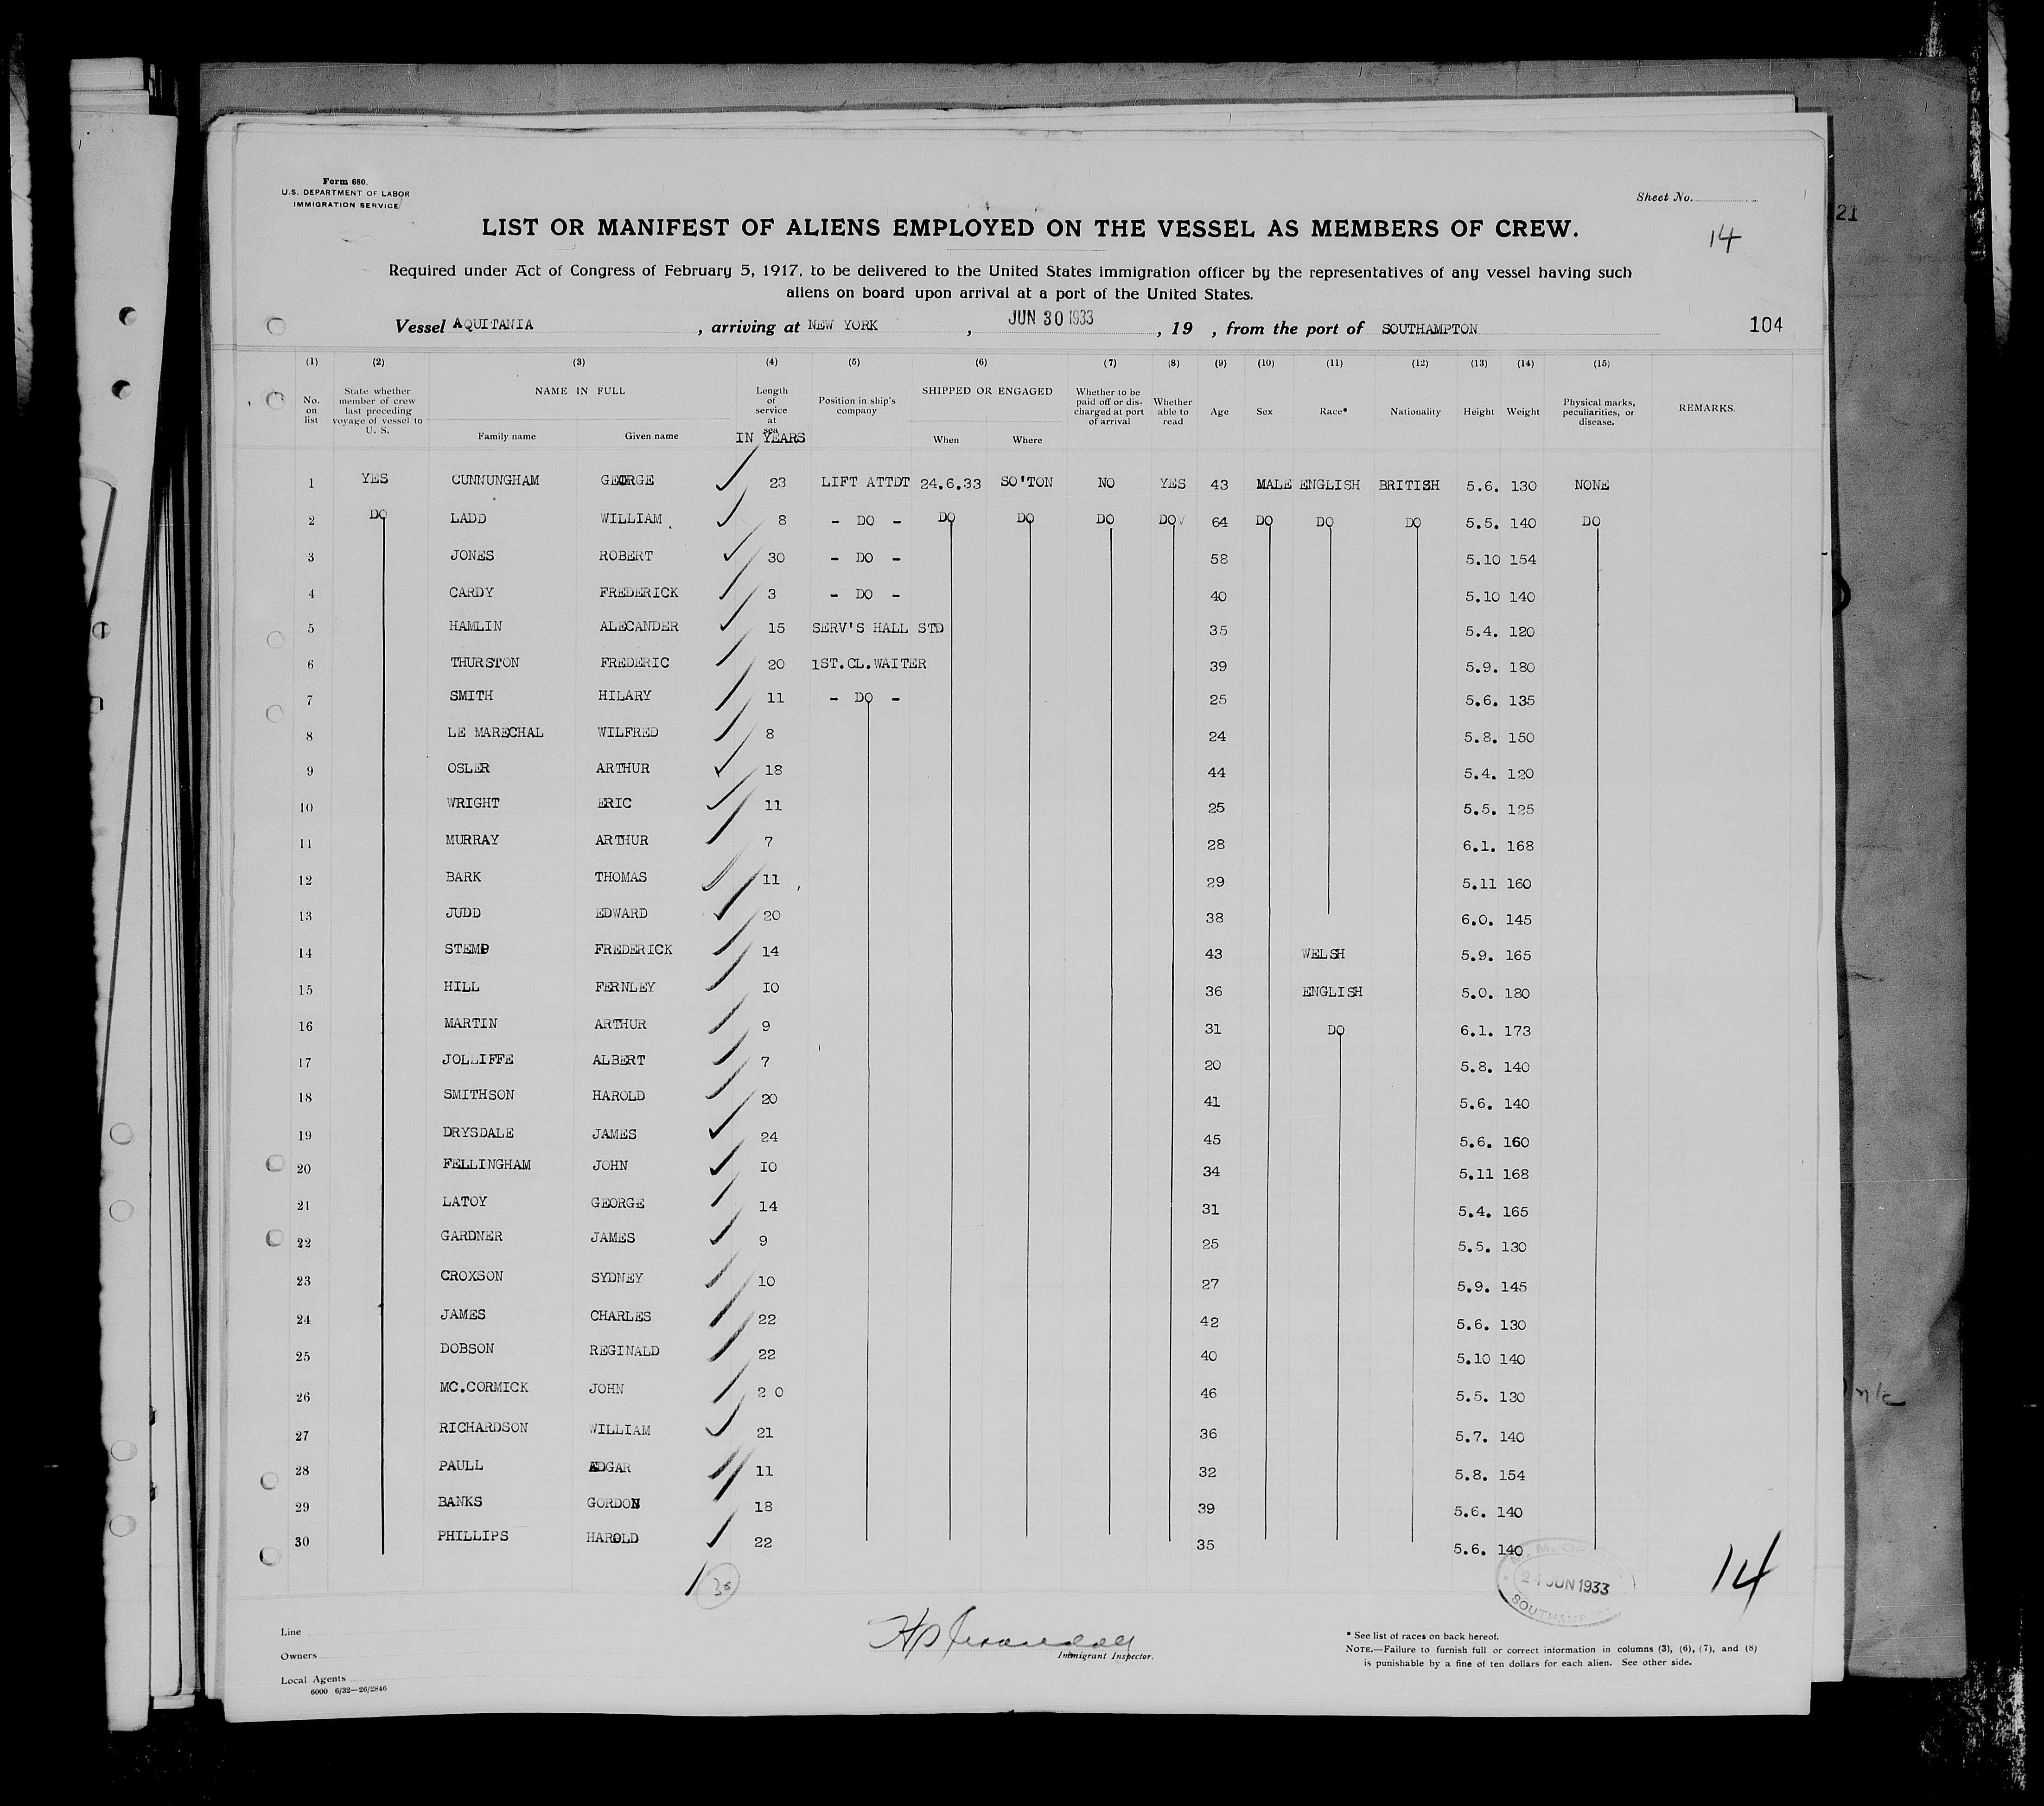 Form 680.
U.S. DEPARTMENT OF LABOR
IMMIGRATION SERVICE
Sheet No.
21
LIST OR MANIFEST OF ALIENS EMPLOYED ON THE VESSEL AS MEMBERS OF CREW.
14
Required under Act of Congress of February 5, 1917, to be delivered to the United States immigration officer by the representatives of any vessel having such
aliens on board upon arrival at a port of the United States.
Vessel AQUITANIA, arriving at NEW YORK, JUN 30 1933, 19 , from the port of SOUTHAMPTON 104
(1) (2) (3) (4) (5) (6) (7) (8) (9) (10) (11) (12) (13) (14) (15)
No. on list State whether member of crew last preceding voyage of vessel to U. S. NAME IN FULL Family name Given name Length of service at sea IN YEARS Position in ship's company SHIPPED OR ENGAGED When Where Whether to be paid off or discharged at port of arrival Whether able to read Age Sex Race* Nationality Height Weight Physical marks, peculiarities, or disease. REMARKS.
1 YES CUNNUNGHAM GEORGE 23 LIFT ATTDT 24.6.33 SO'TON NO YES 43 MALE ENGLISH BRITISH 5.6. 130 NONE
2 DO LADD WILLIAM 8 - DO - DO DO DO DO 64 DO DO DO 5.5. 140 DO
3 JONES ROBERT 30 - DO - 58 5.10 154
4 CARDY FREDERICK 3 - DO - 40 5.10 140
5 HAMLIN ALECANDER 15 SERV'S HALL STD 35 5.4. 120
6 THURSTON FREDERIC 20 1ST.CL.WAITER 39 5.9. 180
7 SMITH HILARY 11 - DO - 25 5.6. 135
8 LE MARECHAL WILFRED 8 24 5.8. 150
9 OSLER ARTHUR 18 44 5.4. 120
10 WRIGHT ERIC 11 25 5.5. 125
11 MURRAY ARTHUR 7 28 6.1. 168
12 BARK THOMAS 11 29 5.11 160
13 JUDD EDWARD 20 38 6.0. 145
14 STEMP FREDERICK 14 43 WELSH 5.9. 165
15 HILL FERNLEY IO 36 ENGLISH 5.0. 180
16 MARTIN ARTHUR 9 31 DO 6.1. 173
17 JOLLIFFE ALBERT 7 20 5.8. 140
18 SMITHSON HAROLD 20 41 5.6. 140
19 DRYSDALE JAMES 24 45 5.6. 160
20 FELLINGHAM JOHN IO 34 5.11 168
21 LATOY GEORGE 14 31 5.4. 165
22 GARDNER JAMES 9 25 5.5. 130
23 CROXSON SYDNEY 10 27 5.9. 145
24 JAMES CHARLES 22 42 5.6. 130
25 DOBSON REGINALD 22 40 5.10 140
26 MC.CORMICK JOHN 2 0 46 5.5. 130
27 RICHARDSON WILLIAM 21 36 5.7. 140
28 PAULL EDGAR 11 32 5.8. 154
29 BANKS GORDON 18 39 5.6. 140
30 PHILLIPS HAROLD 22 35 5.6. 140
30
JUN 1933
SOUTHAMPTON
14
Line
Owners
Local Agents
6000 6/32—26/2846
Immigrant Inspector.
* See list of races on back hereof.
NOTE.—Failure to furnish full or correct information in columns (3), (6), (7), and (8)
is punishable by a fine of ten dollars for each alien. See other side.